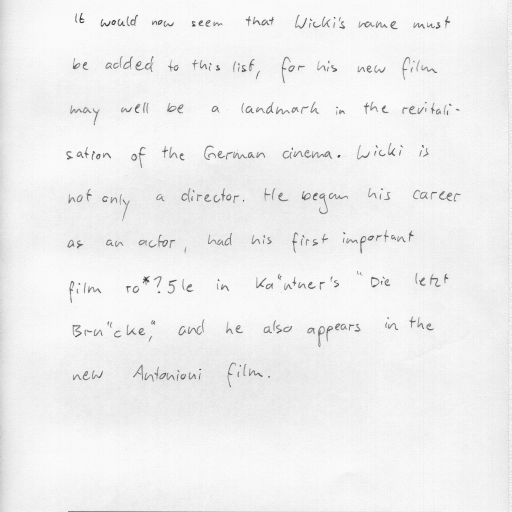 It would now seem that Wicki's name must
be added to this list, for his new film
may well be a landmark in the revitali-
sation of the German cinema. Wicki is
not only a director. He began his career
as an actor, had his first important
film ro*?5le in Ka"utner's "Die letzt
Bru"cke," and he also appears in the
new Antonioni film.